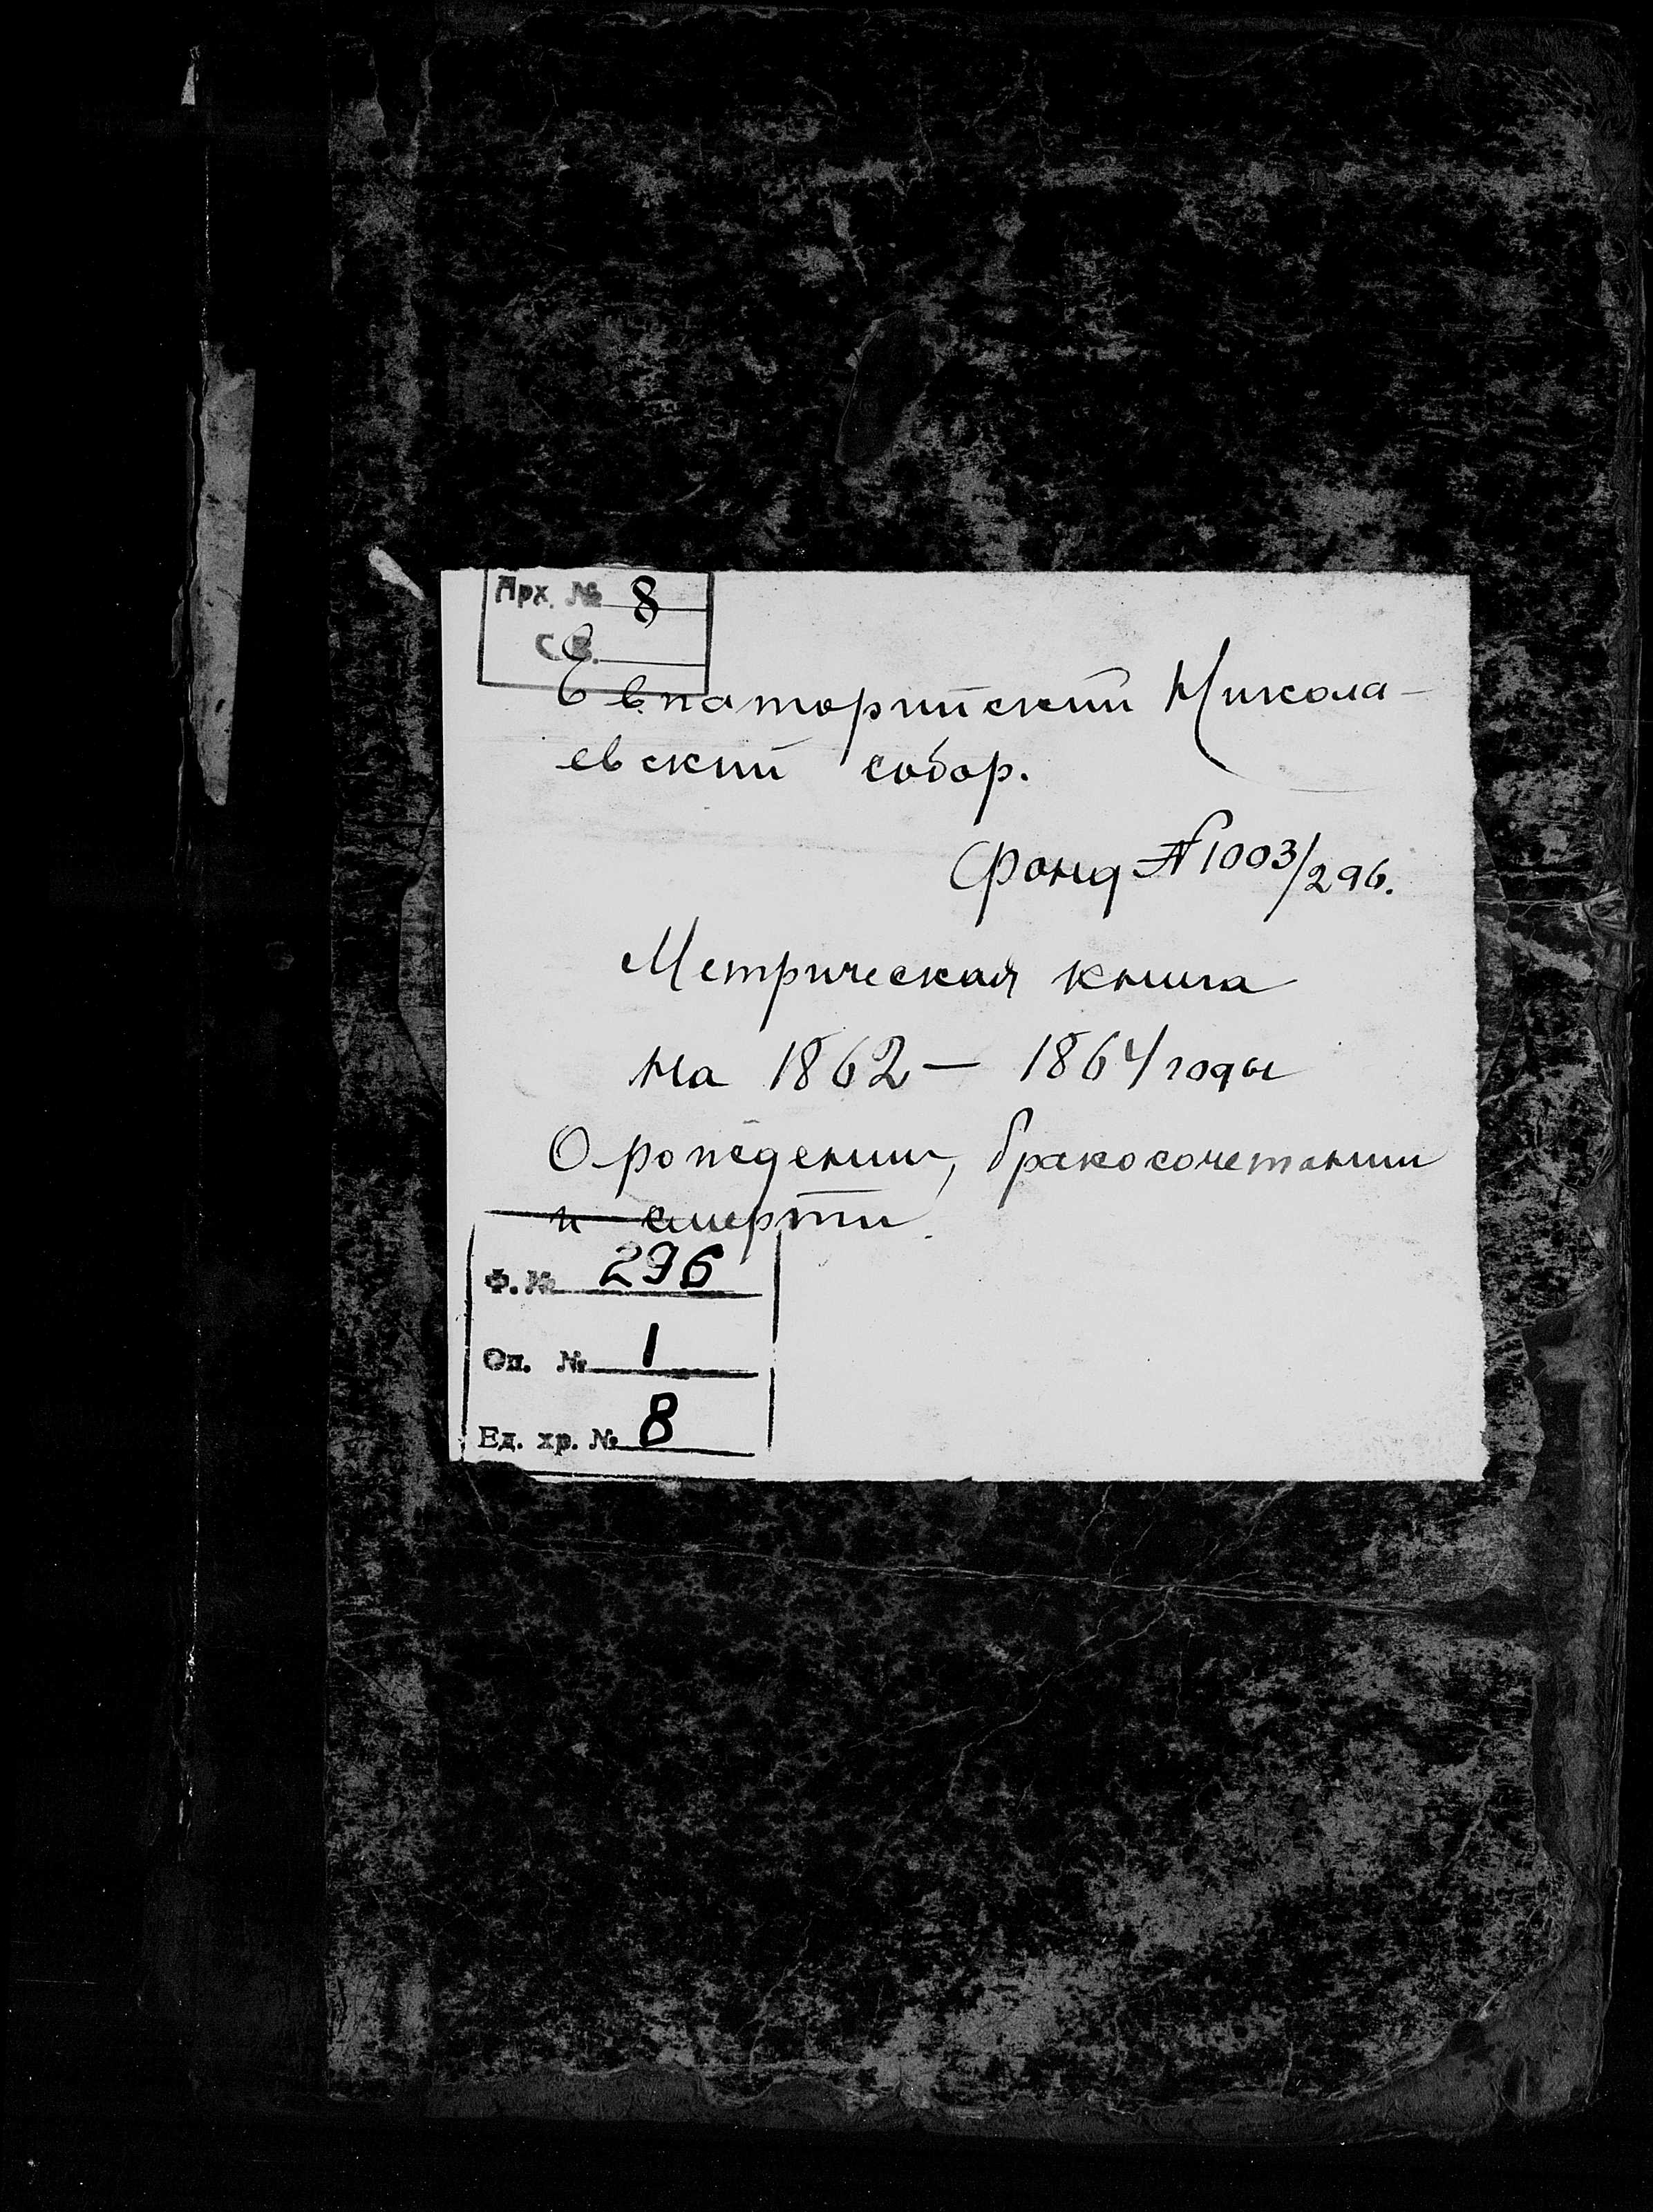 Арх. № 8
С.В.
Евпаторийский Никола-
евский собор.
Фонд № 1003/296.
Метрическая книга
на 1862 – 1864 годы
О рождении, бракосочетании
и смерти.
Ф. № 296
Оп. № 1
Ед. хр. № 8